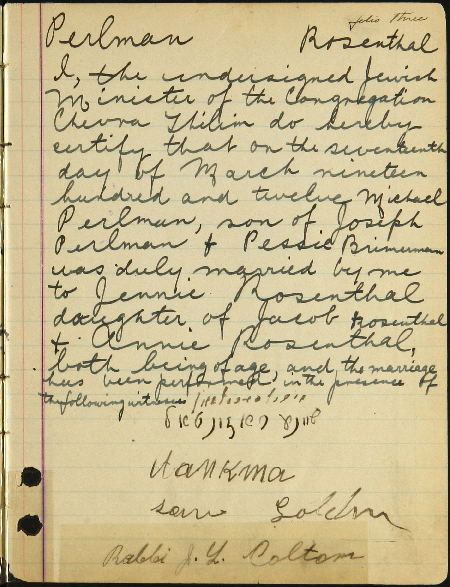 folio three
Perlman Rosenthal
I, the undersigned Jewish
Minister of the Congregation
Chevra Thilim do hereby
certify that on the seventeenth
day of March nineteen
hundred and twelve Michael
Perlman, son of Joseph
Perlman & Pessie Brimerman
was duly married by me
to Jennie Rosenthal
daughter of Jacob Rosenthal
& Annie Rosenthal,
both being of age, and the marriage
has been performed in the presence of
the following witnesses
Rabbi J. L. Colton